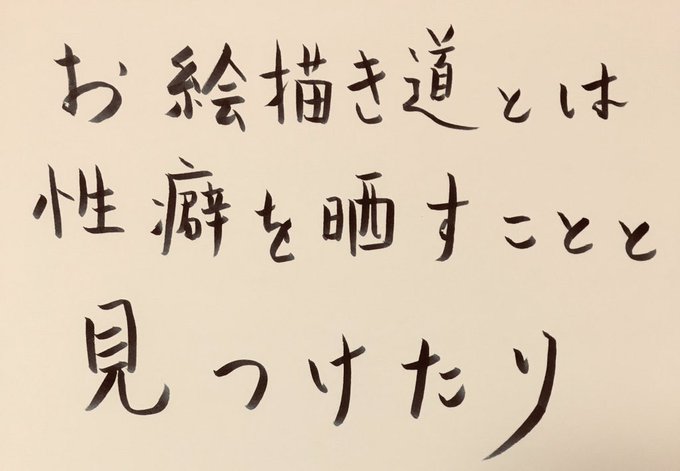 お絵描き道とは
性癖を晒すことと
見つけたり